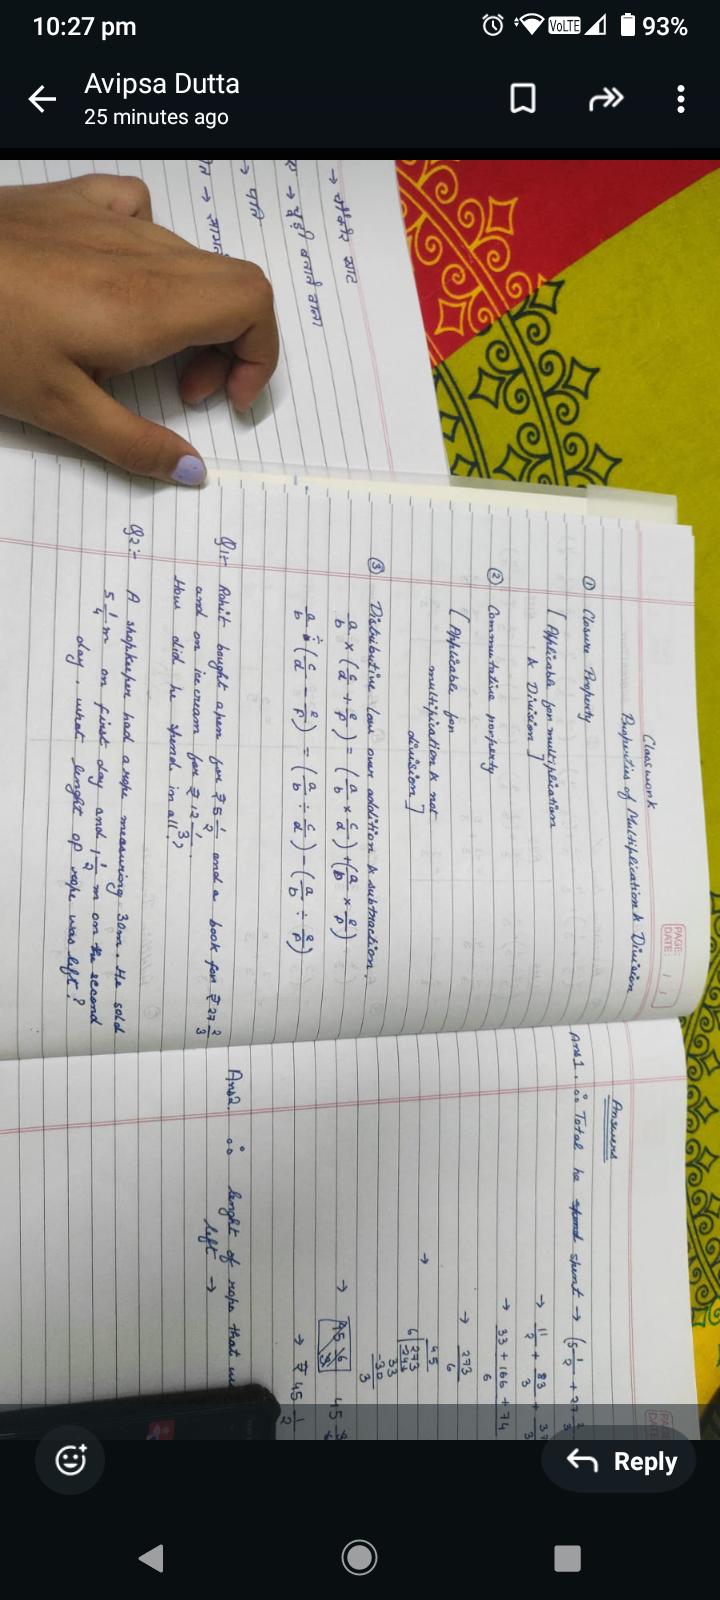 10:27 pm
VoLTE
93%
Avipsa Dutta
25 minutes ago
→ चूड़ी बनाने वाला
→ पति
PAGE:
DATE: / /
Classwork
Properties of Multiplication & Division
① Closure Property
[Applicable for multiplication
& Division]
② Commutative porperty
[Applicable for
multiplication & not
division]
③ Distributive law over addition & subtraction.
a/b × (c/d + e/f) = (a/b × c/d) + (a/b × e/f)
a/b ÷ (c/d − e/f) = (a/b ÷ c/d) − (a/b ÷ e/f)
Q1:- Rohit bought a pen for ₹ 5 1/2 and a book for ₹ 27 2/3
and on ice cream for ₹ 12 1/3.
How did he spend in all?
Q2:- A shopkeeper had a rope measuring 30m. He sold
5 1/4 m on first day and 1 1/2 m on the second
day. what lenght of rope was left?
PAGE
DATE
Answers
Ans1. ∴ Total he spent → (5 1/2 + 27 2/3
→ 11/2 + 83/3 + 37/3
→ 33 + 166 + 74
6
→ 273/6
→ 45
6 273
33
-30
3
→ 45
→ ₹ 45 1/2
Ans2. ∴ lenght of rope that
left →
Reply